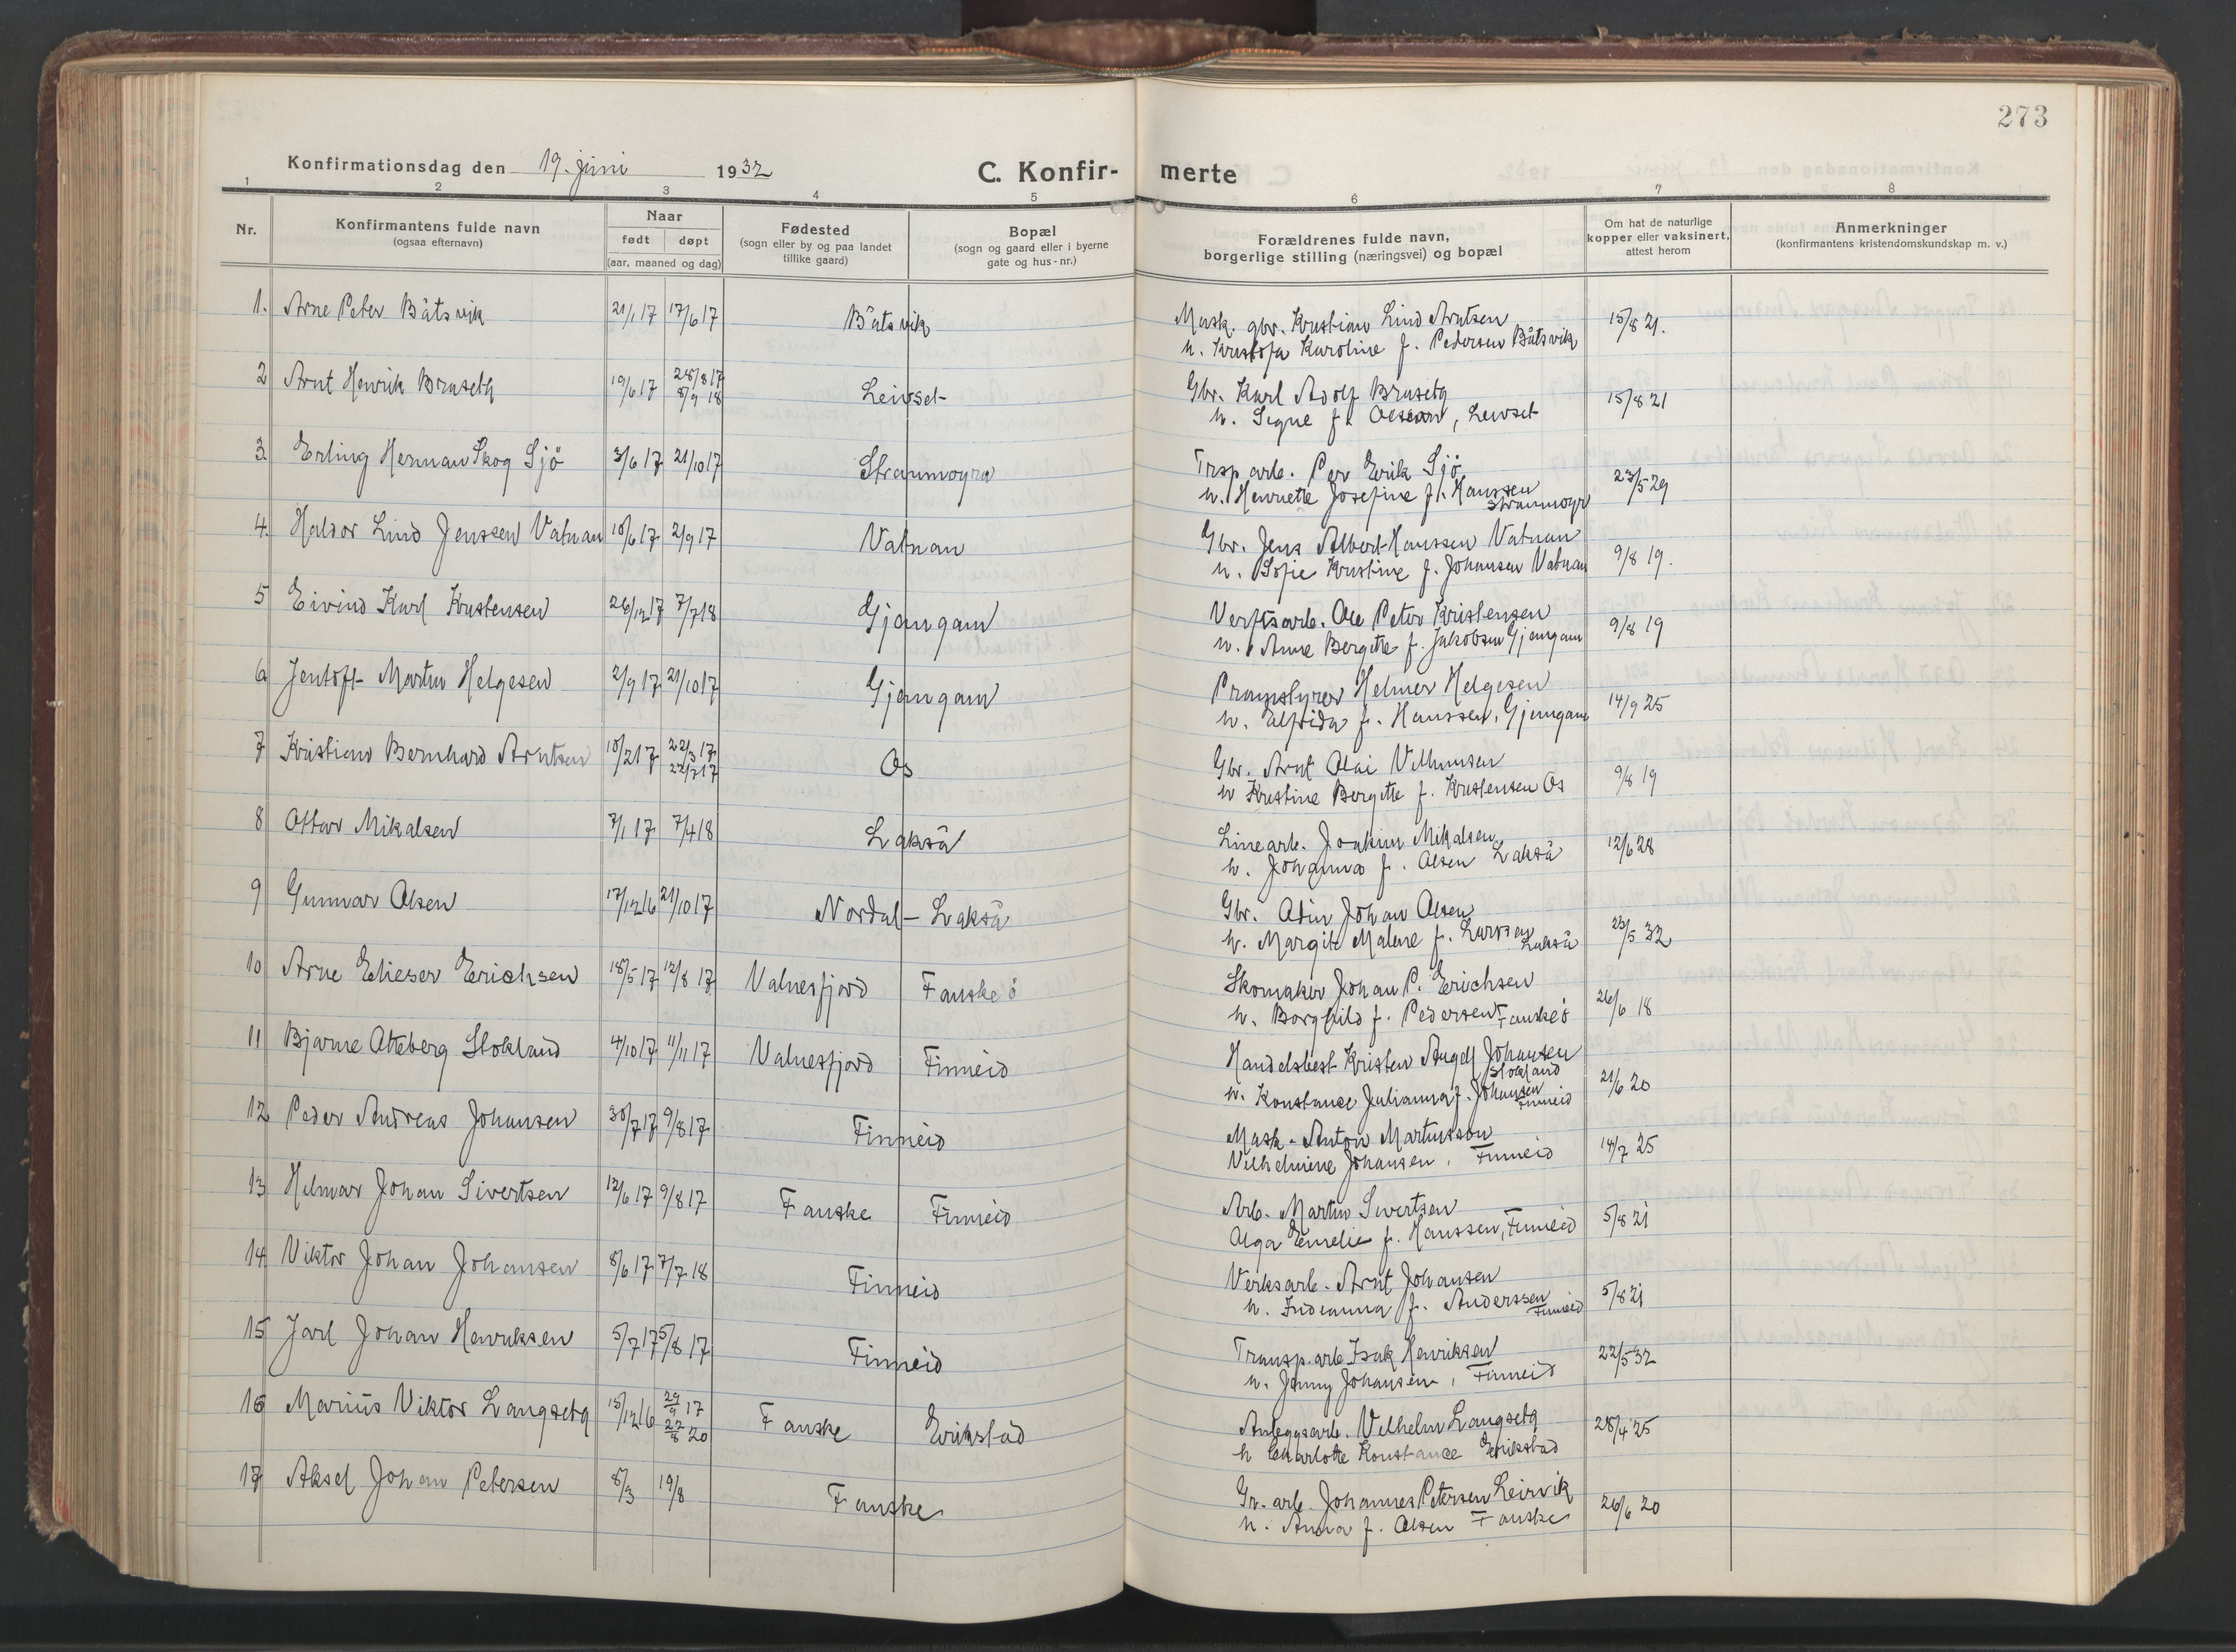 273
Konfirmationsdag den 19. juni 1932
C. Konfir- merte
1 2 3 4 5 6 7 8
Nr.
Konfirmantens fulde navn
(ogsaa efternavn)
Naar
født døpt
(aar, maaned og dag)
Fødested
(sogn eller by og paa landet
tillike gaard)
Bopæl
(sogn og gaard eller i byerne
gate og hus-nr.)
Forældrenes fulde navn,
borgerlige stilling (næringsvei) og bopæl
Om hat de naturlige
kopper eller vaksinert,
attest herom
Anmerkninger
(konfirmantens kristendomskundskap m. v.)
1. Arne Peter Båtsvik 21/1 17 17/6 17 Båtsvik Mask. gbr. Kristian Lind Arntsen 15/8 21.
h. Kristofa Karoline f. Pedersen Båtsvik
2 Arnt Henrik Bruseth 19/6 17 28/8 17 Leivset Gbr. Karl Adolf Bruseth 15/8 21
8/9 18 h. Signe f. Olsen, Leivset
3. Erling Herman Skog Sjö 3/6 17 21/10 17 Straumøyra Trsp. arb. Per Erik Sjö 23/5 29
h. Henriette Josefine f. Hanssen
Straumøyr
4. Haldor Lind Jenssen Vatnan 10/6 17 2/9 17 Vatnan Gbr. Jens Albert Hanssen Vatnan 9/8 19.
h. Sofie Kristine f. Johansen Vatnan
5 Eivind Karl Kristensen 26/12 17 7/7 18 Gjemgam Verftsarb. Ole Peter Kristensen 9/8 19
h. Anne Bergitte f. Jakobsen Gjemgam
6 Jentoft Martin Helgesen 2/9 17 21/10 17 Gjemgam Pramstyrer Helmer Helgesen 14/9 25
h. Elfrida f. Hanssen, Gjemgam
7 Kristian Bernhard Arntsen 10/2 17 22/3 17 Os Gbr. Arnt Olai Vilhelmsen 9/8 19
22/7 17 h Kristine Bergitte f. Kristensen Os
8 Ottar Mikalsen 7/1 17 7/4 18 Lakså Linearb. Joakim Mikalsen 12/6 28
h. Johanna f. Olsen Lakså
9 Gunnar Olsen 17/12 16 21/10 17 Nordal - Lakså Gbr. Odin Johan Olsen 23/5 32
h. Margit Malene f. Larssen
Lakså
10 Arne Elieser Erichsen 18/5 17 12/8 17 Valnesfjord Fauske ö Skomaker Johan P. Erichsen 26/6 18
h. Borghild f. Pedersen Fauske ö
11 Bjarne Atteberg Stokland 4/10 17 11/11 17 Valnesfjord Finneid Handelsbest. Kristen Angell Johansen 21/6 20
Stokland
h. Konstance Julianna f. Johansen
Finneid
12 Peder Andreas Johansen 30/7 17 9/8 17 Finneid Mask. Anton Martinsson 14/7 25
Vilhelmine Johansen, Finneid
13 Helmar Johan Sivertsen 12/6 17 9/8 17 Fauske Finneid Arb. Martin Sivertsen 5/8 21
Olga Emelie f. Hanssen, Finneid
14 Viktor Johan Johansen 8/6 17 7/7 18 Finneid Verksarb. Arnt Johansen 5/8 21
h. Indianna f. Anderssen
Finneid
15 Jarl Johan Henriksen 5/7 17 5/8 17 Finneid Transp. arb. Isak Henriksen 22/5 32
h. Jenny Johansen, Finneid
16 Marius Viktor Langseth 15/12 16 29/9 17 Fauske Erikstad Anleggsarb. Vilhelm Langseth 28/4 25
22/8 20 h Charlotte Konstance Erikstad
17 Aksel Johan Petersen 8/3 19/8 Fauske Gr. arb. Johannes Petersen Leirvik 26/6 20
h. Anna f. Olsen Fauske